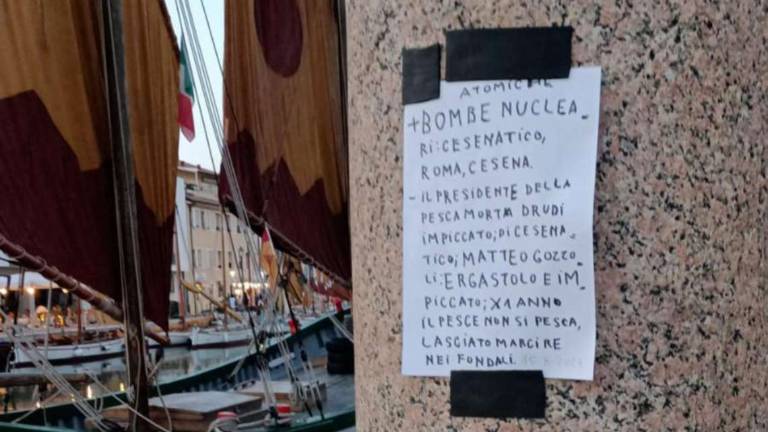 ATOMICHE
+BOMBE NUCLEA-
RI: CESENATICO,
ROMA, CESENA.
- IL PRESIDENTE DELLA
PESCA MORTA DRUDI
IMPICCATO; DI CESENA-
TICO; MATTEO GOZZO
LI: ERGASTOLO E IM-
PICCATO; X 1 ANNO
IL PESCE NON SI PESCA,
LASCIATO MARCIRE
NEI FONDALI.